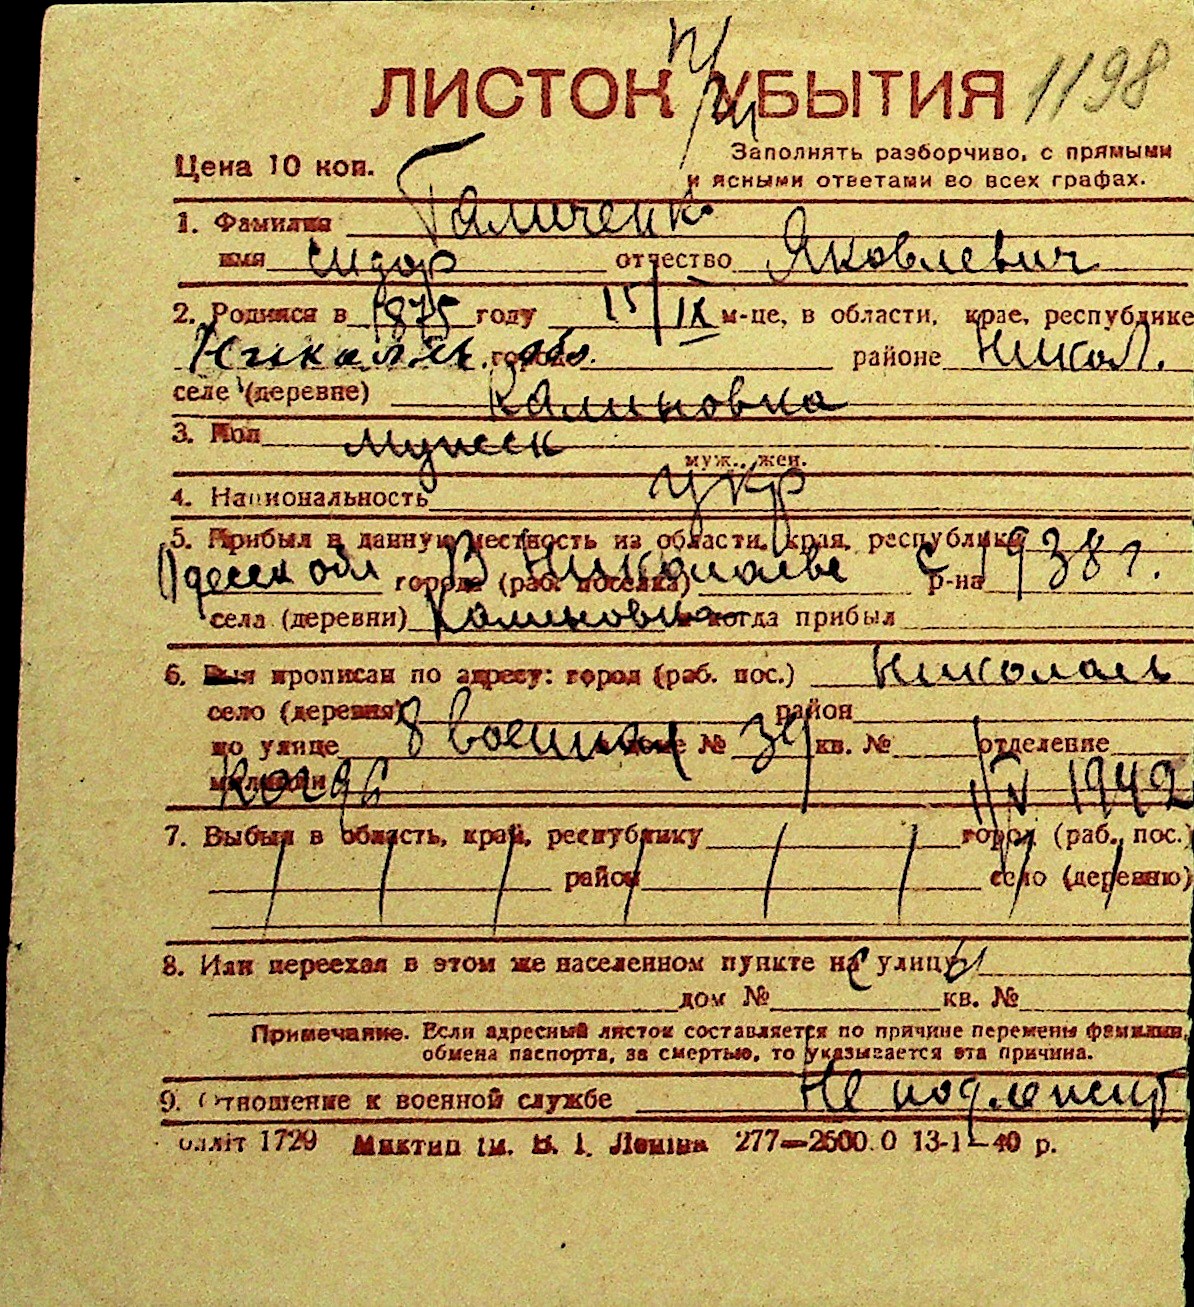 ЛИСТОК УБЫТИЯ 1198
Цена 10 коп.
Заполнять разборчиво, с прямыми
и ясными ответами во всех графах.
1. Фамилия Галиченко
имя Сидор отчество Яковлевич
2. Родился в 1875 году 15/IX м-це, в области, крае, республике
Николаев. города обл. районе Никол.
селе (деревне) Калиновка
3. Пол мужск
муж., жен.
4. Национальность укр
5. Прибыл в данную местность из области, края, республики
Одесск обл города (раб. поселка) В Николаеве с р-на 1938 г.
села (деревни) Калиновка и когда прибыл
6. Был прописан по адресу: город (раб. пос.) Николаев
село (деревня) район
по улице 8 военная доме № 39 кв. № отделение
милиции когда 1/IV 1942
7. Выбыл в область, край, республику город (раб. пос.)
район село (деревню)
8. Или переехал в этом же населенном пункте на улицу
дом № кв. №
Примечание. Если адресный листок составляется по причине перемены фамилии,
обмена паспорта, за смертью, то указывается эта причина.
9. Отношение к военной службе Не подлежит
оліт 1729 Миктип ім. В. І. Леніна 277—2500.0 13-1—40 р.